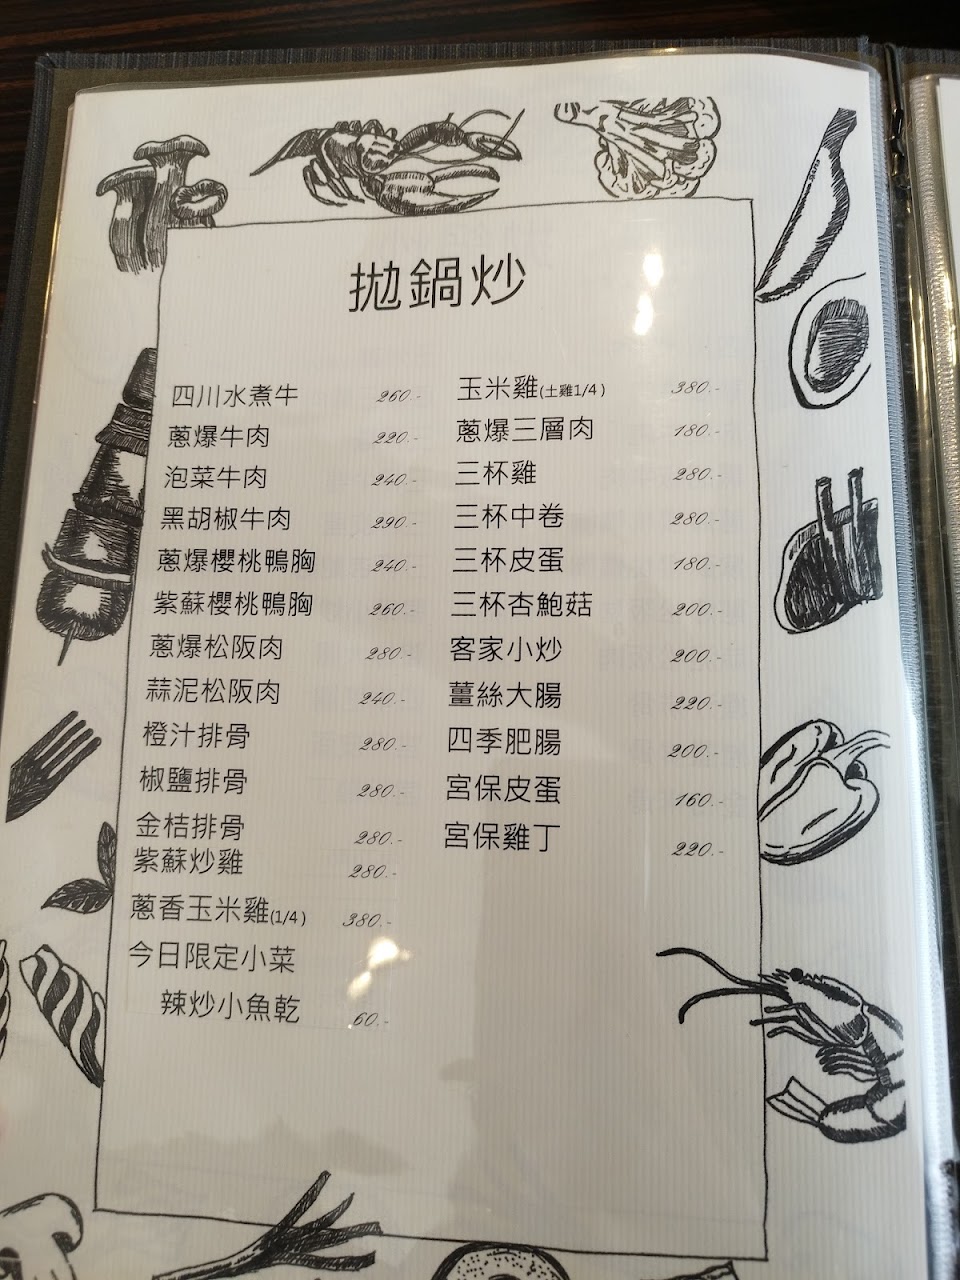 拋鍋炒
四川水煮牛 260.-
蔥爆牛肉 220.-
泡菜牛肉 240.-
黑胡椒牛肉 290.-
蔥爆櫻桃鴨胸 240.-
紫蘇櫻桃鴨胸 260.-
蔥爆松阪肉 280.-
蒜泥松阪肉 240.-
橙汁排骨 280.-
椒鹽排骨 280.-
金桔排骨 280.-
紫蘇炒雞 280.-
蔥香玉米雞(1/4) 380.-
今日限定小菜
辣炒小魚乾 60.-
玉米雞(土雞1/4) 380.-
蔥爆三層肉 180.-
三杯雞 280.-
三杯中卷 280.-
三杯皮蛋 180.-
三杯杏鮑菇 200.-
客家小炒 200.-
薑絲大腸 220.-
四季肥腸 200.-
宮保皮蛋 160.-
宮保雞丁 220.-